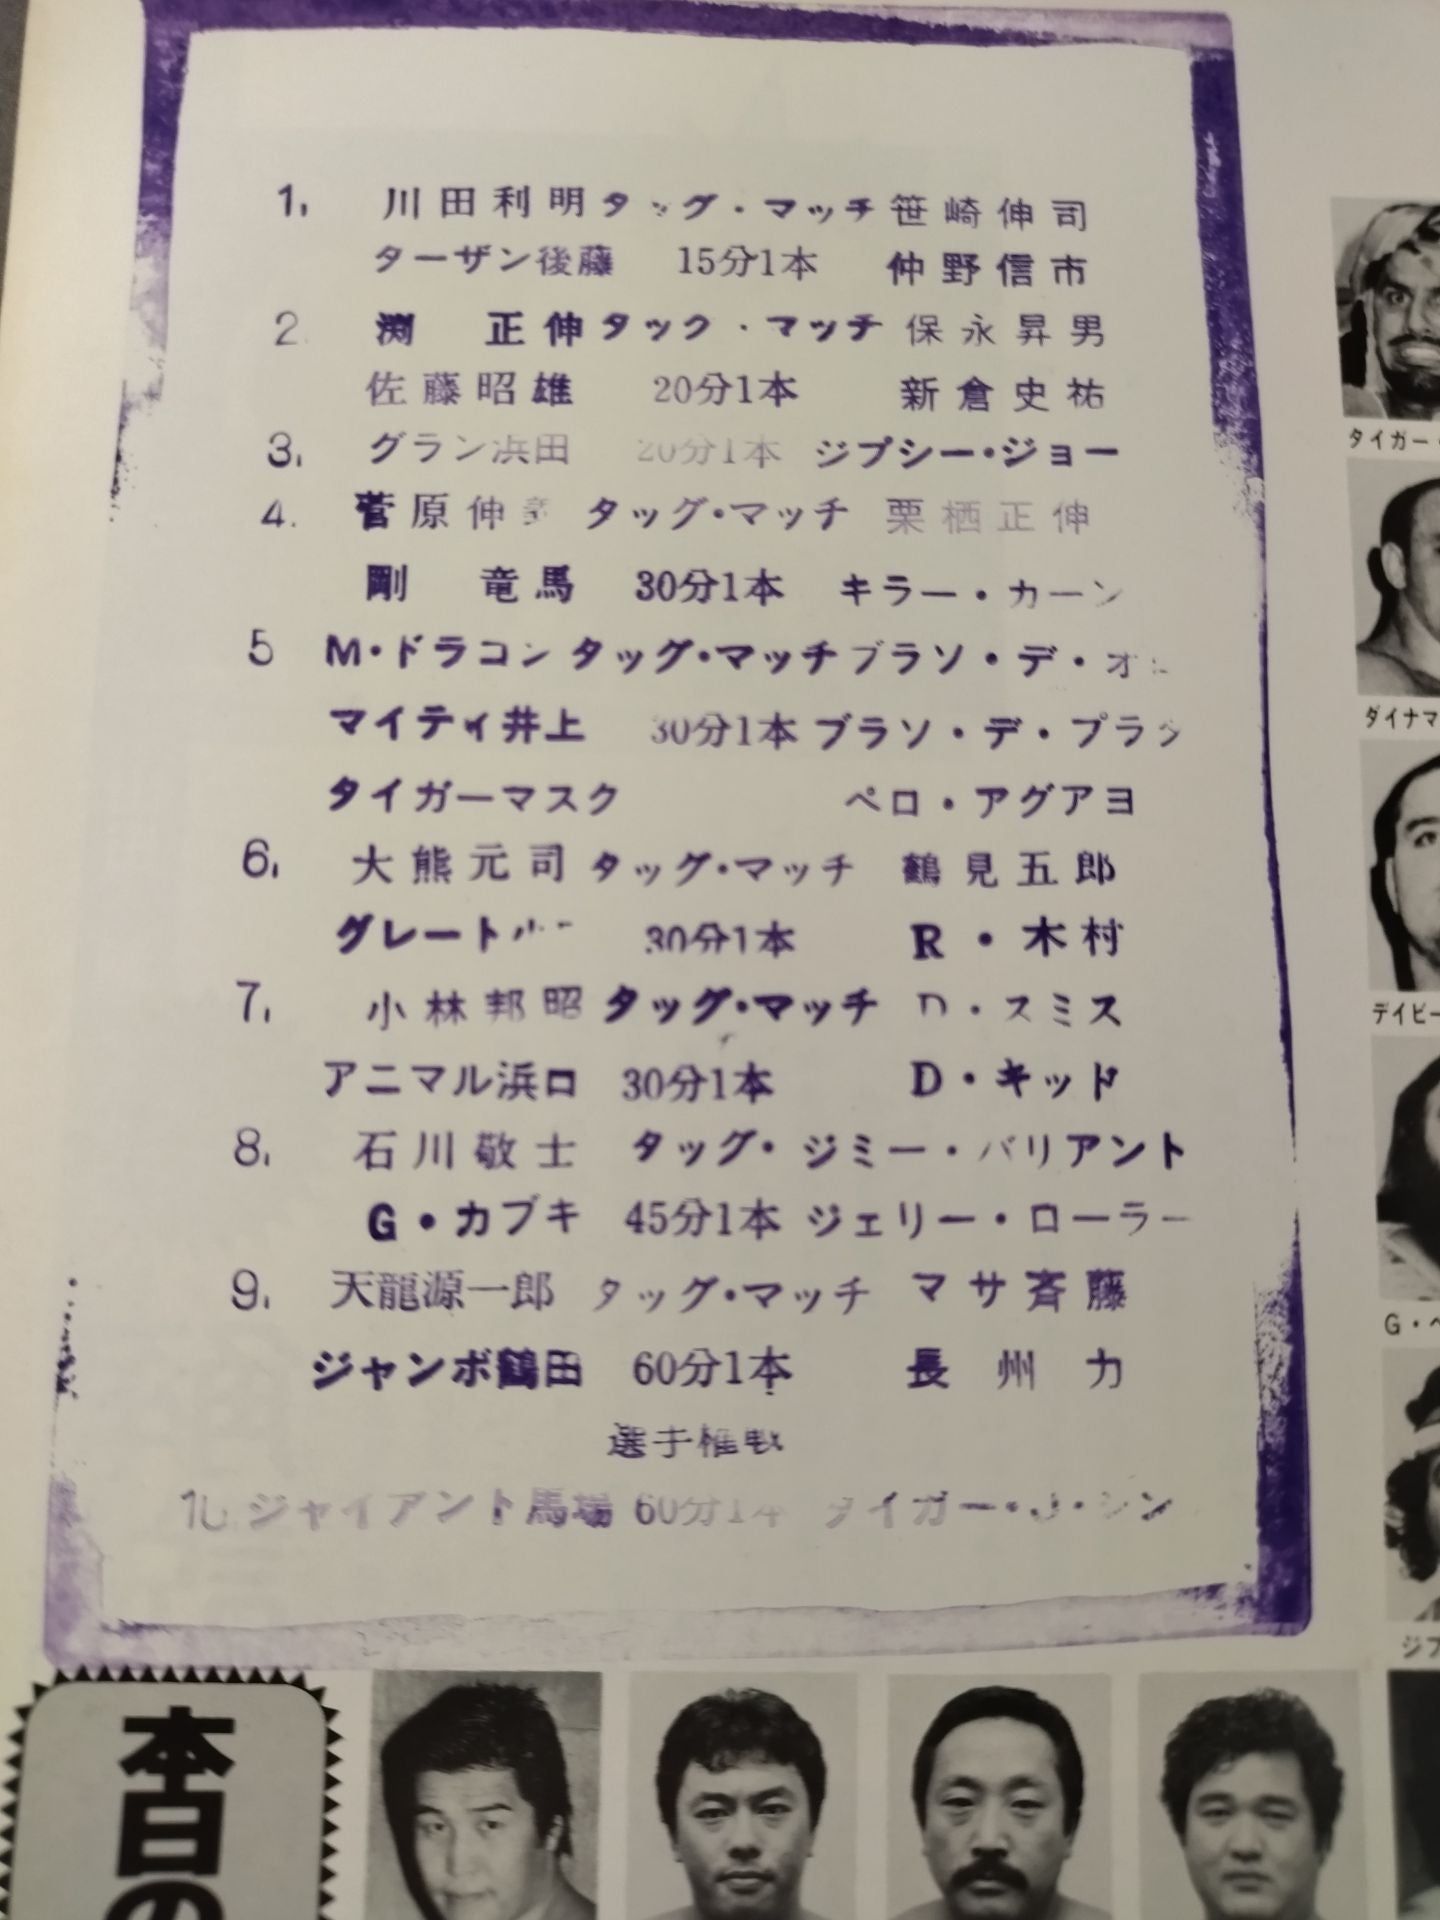 1. 川田利明 タッグ・マッチ 笹崎伸司
ターザン後藤 15分1本 仲野信市
2. 渕 正伸 タック・マッチ 保永昇男
佐藤昭雄 20分1本 新倉史祐
3. グラン浜田 20分1本 ジプシー・ジョー
4. 菅原伸義 タッグ・マッチ 栗栖正伸
剛 竜馬 30分1本 キラー・カーン
5 M・ドラコン タッグ・マッチ ブラソ・デ・オロ
マイティ井上 30分1本 ブラソ・デ・プラタ
タイガーマスク ペロ・アグアヨ
6. 大熊元司 タッグ・マッチ 鶴見五郎
グレート 30分1本 R・木村
7. 小林邦昭 タッグ・マッチ D・スミス
アニマル浜口 30分1本 D・キッド
8. 石川敬士 タッグ・ ジミー・バリアント
G・カブキ 45分1本 ジェリー・ローラー
9. 天龍源一郎 タッグ・マッチ マサ斉藤
ジャンボ鶴田 60分1本 長州力
選手権戦
10 ジャイアント馬場 60分1本 タイガー・J・シン
タイガー・
ダイナマ
デイビー
G・
ジプ
本日の